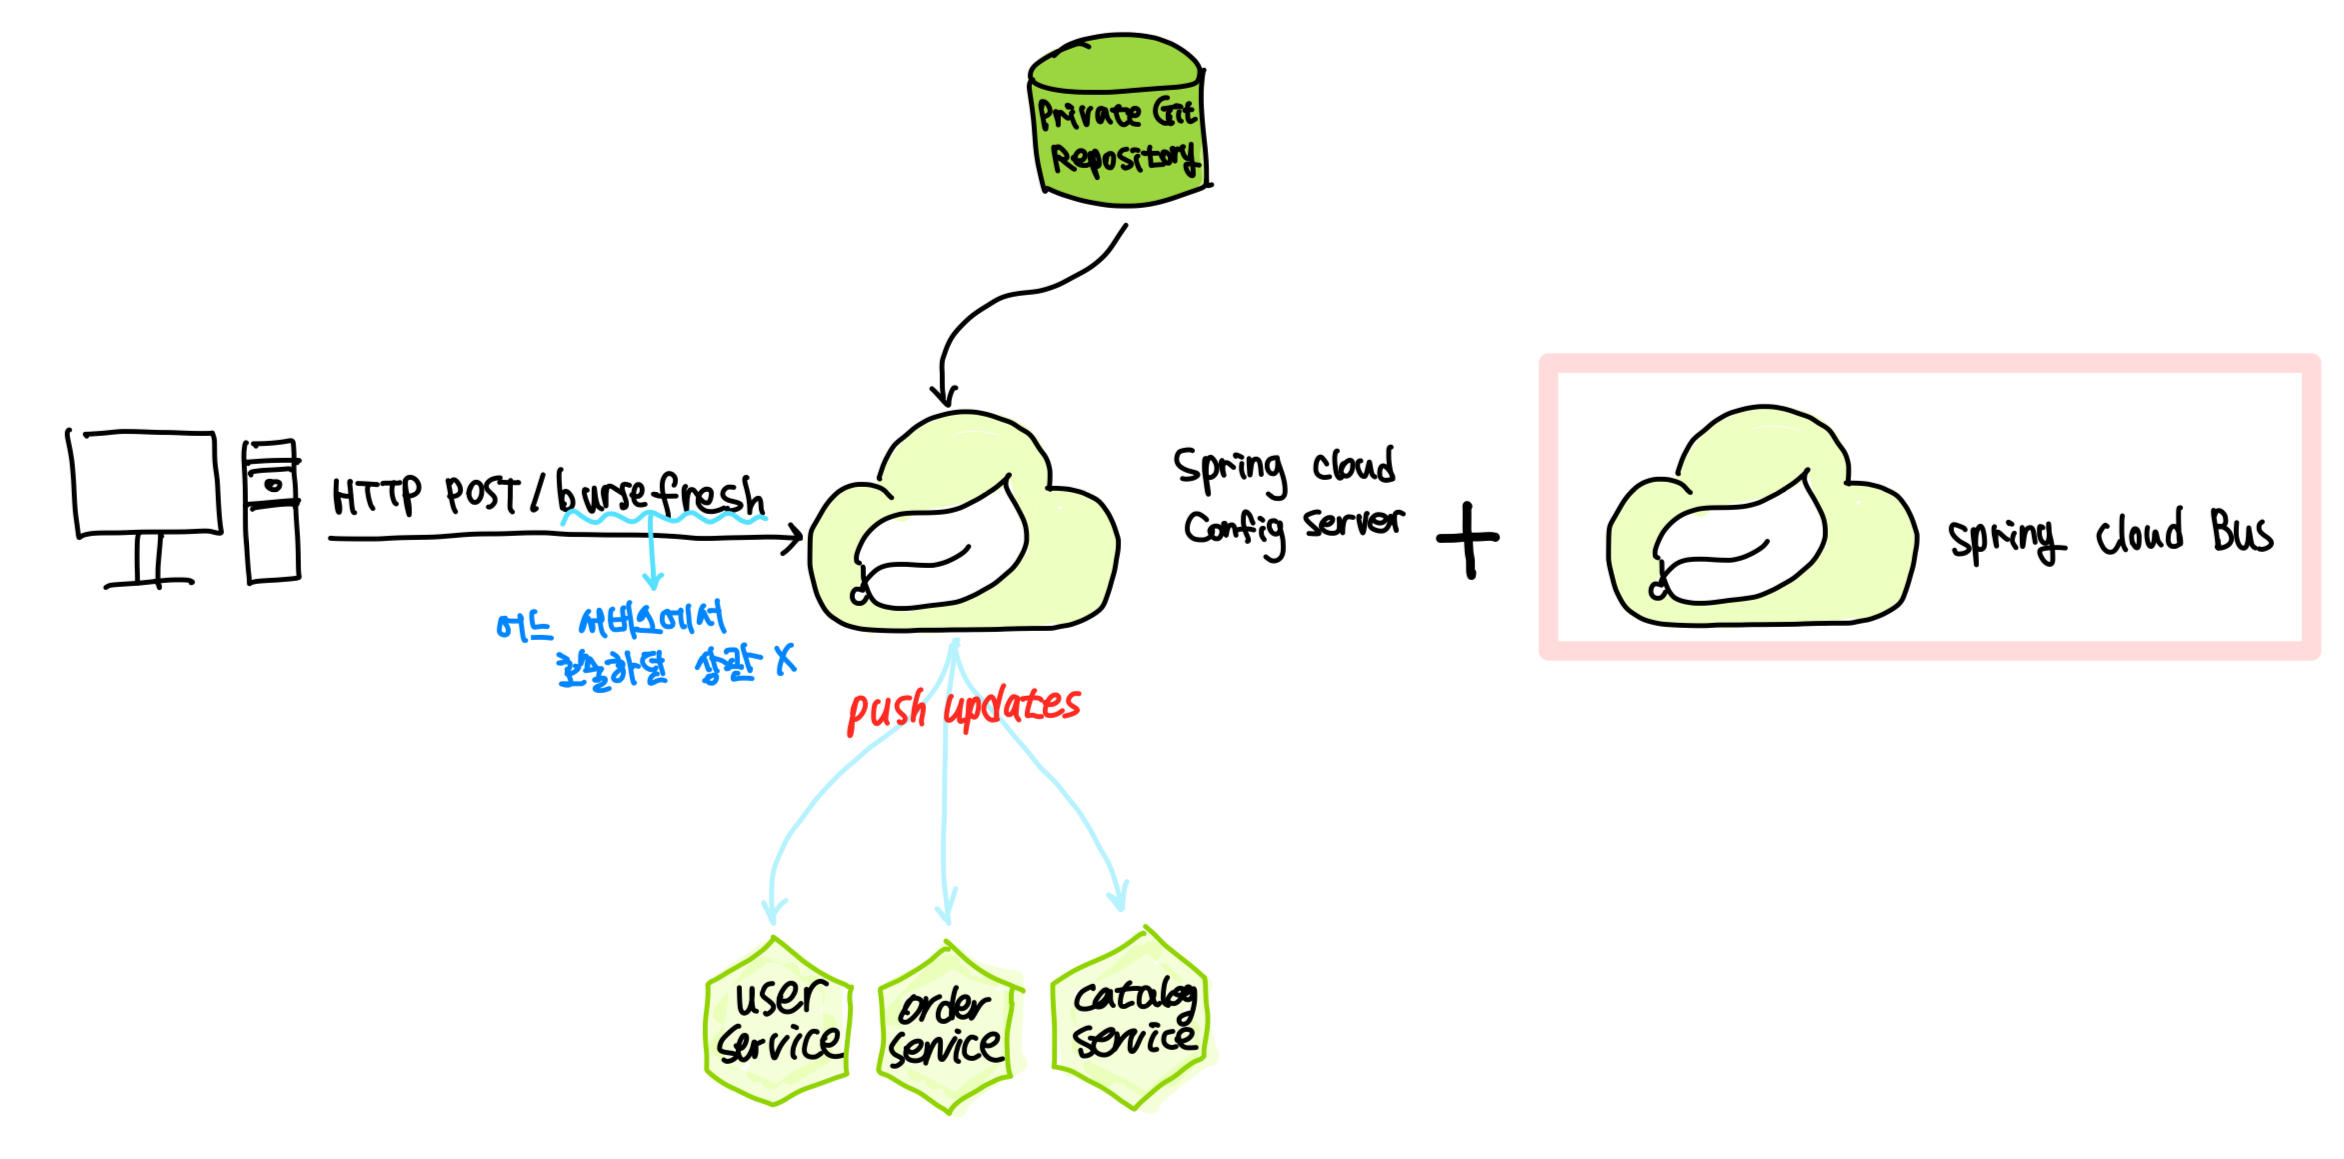 Private Git
Repository
HTTP POST/busrefresh
어느 서비스에서
호출하던 상관 X
Spring cloud
Config server
+
Spring cloud Bus
push updates
user
service
order
service
catalog
service